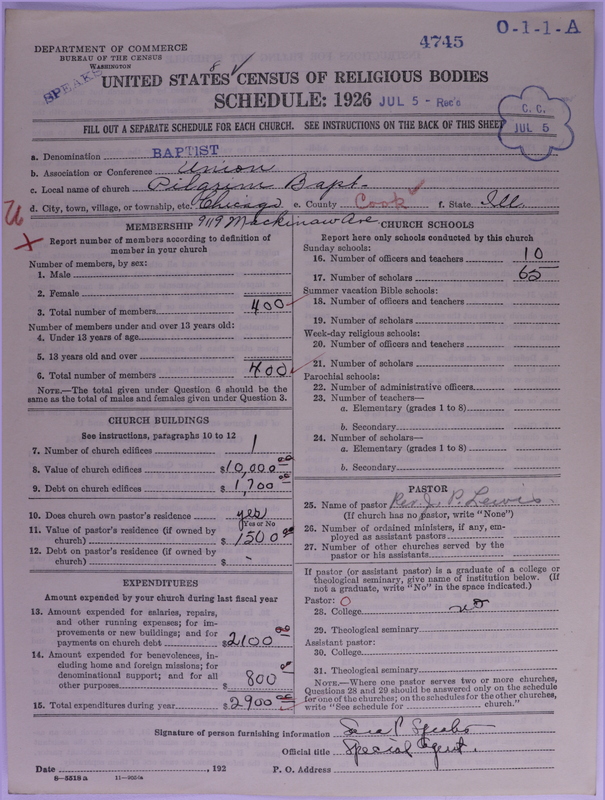 4745
O-1-1-A
DEPARTMENT OF COMMERCE
BUREAU OF THE CENSUS
WASHINGTON
SPEAKS
UNITED STATES CENSUS OF RELIGIOUS BODIES
SCHEDULE: 1926 JUL 5 - Rec'd
C. C.
JUL 5
FILL OUT A SEPARATE SCHEDULE FOR EACH CHURCH. SEE INSTRUCTIONS ON THE BACK OF THIS SHEET
a. Denomination BAPTIST
b. Association or Conference Union
c. Local name of church Pilgrim Bapt.
d. City, town, village, or township, etc. Chicago e. County Cook f. State Ill.
9119 Mackinaw Ave
MEMBERSHIP
Report number of members according to definition of
member in your church
Number of members, by sex:
1. Male
2. Female
3. Total number of members 400
Number of members under and over 13 years old:
4. Under 13 years of age
5. 13 years old and over
6. Total number of members 400
NOTE.—The total given under Question 6 should be
same as the total of males and females given under Question 3.
CHURCH BUILDINGS
See instructions, paragraphs 10 to 12
7. Number of church edifices 1
8. Value of church edifices $10,000.00
9. Debt on church edifices $1,700.00
10. Does church own pastor's residence yes
(Yes or No)
11. Value of pastor's residence (if owned by
church) $1500.00
12. Debt on pastor's residence (if owned by
church) $ -
EXPENDITURES
Amount expended by your church during last fiscal year
13. Amount expended for salaries, repairs,
and other running expenses; for im-
provements or new buildings; and for
payments on church debt $2100.00
14. Amount expended for benevolences, in-
cluding home and foreign missions; for
denominational support; and for all
other purposes $800.00
15. Total expenditures during year $2900.00
CHURCH SCHOOLS
Report here only schools conducted by this church
Sunday schools:
16. Number of officers and teachers 10
17. Number of scholars 65
Summer vacation Bible schools:
18. Number of officers and teachers
19. Number of scholars
Week-day religious schools:
20. Number of officers and teachers
21. Number of scholars
Parochial schools:
22. Number of administrative officers
23. Number of teachers—
a. Elementary (grades 1 to 8)
b. Secondary
24. Number of scholars—
a. Elementary (grades 1 to 8)
b. Secondary
PASTOR
25. Name of pastor Rev. J. P. Lewis
(If church has no pastor, write "None")
26. Number of ordained ministers, if any, em-
ployed as assistant pastors
27. Number of other churches served by the
pastor or his assistants
If pastor (or assistant pastor) is a graduate of a college or
theological seminary, give name of institution below. (If
not a graduate, write "No" in the space indicated.)
Pastor: O
28. College no
29. Theological seminary
Assistant pastor:
30. College
31. Theological seminary
NOTE.—Where one pastor serves two or more churches,
Questions 28 and 29 should be answered only on the schedule
for one of the churches; on the schedules for the other churches,
write "See schedule for church."
Signature of person furnishing information P. Speaks
Official title Special Agent.
Date , 192 P. O. Address
8-5518 a